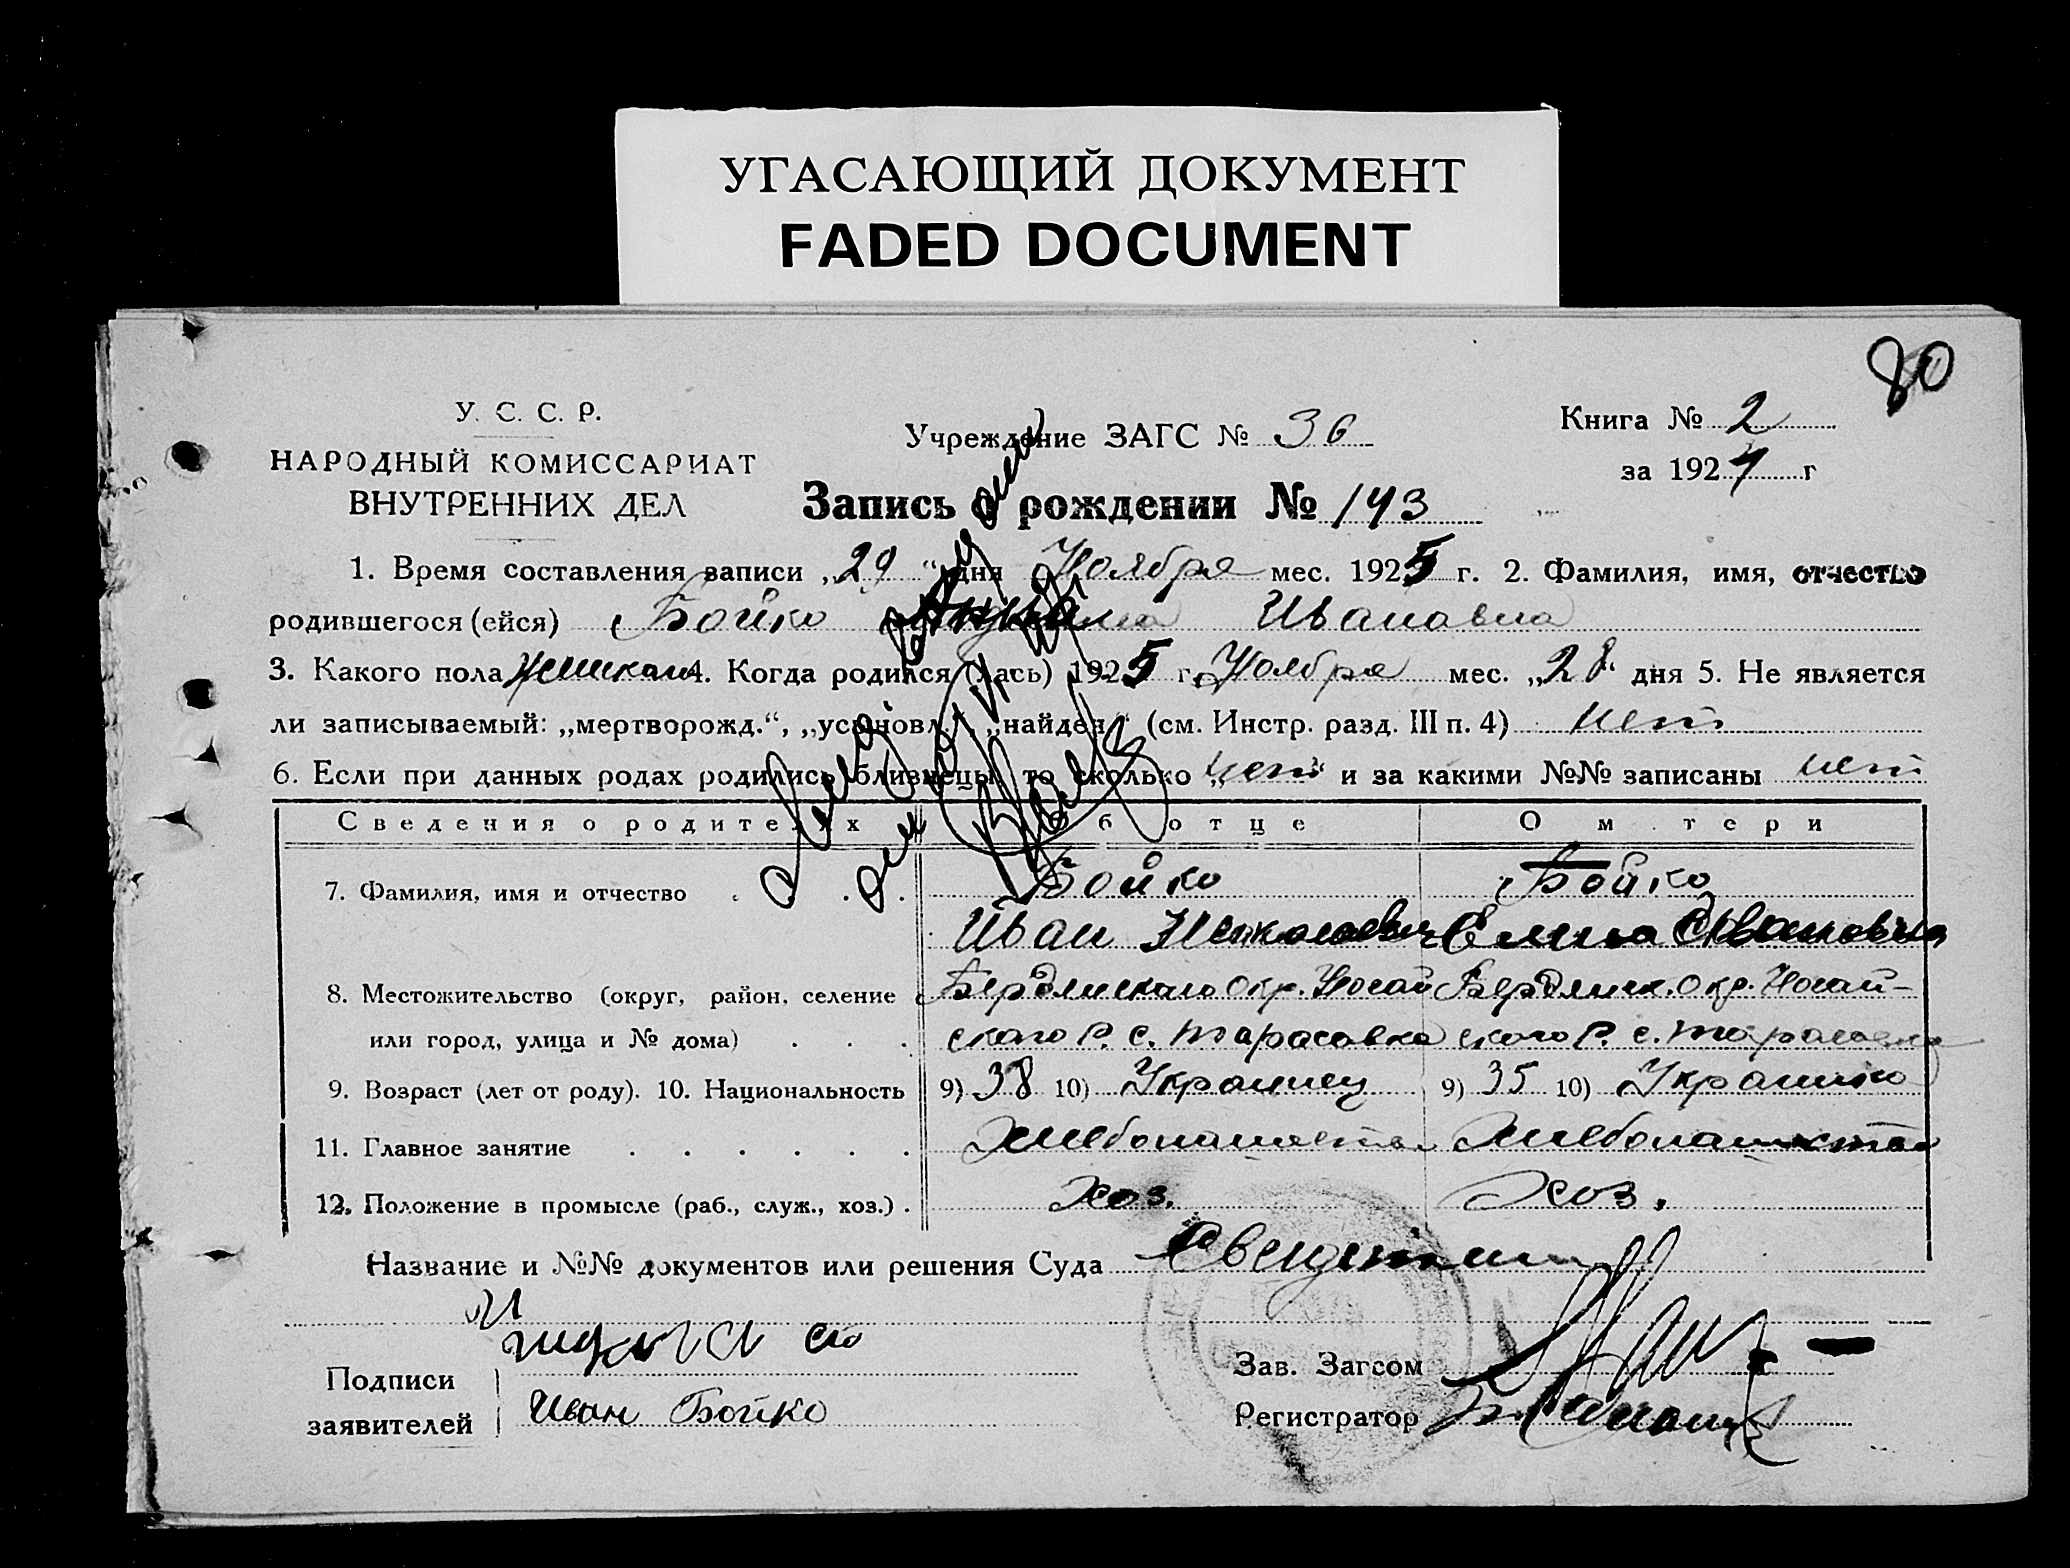 УГАСАЮЩИЙ ДОКУМЕНТ
FADED DOCUMENT
80
У. С. С. Р.
НАРОДНЫЙ КОМИССАРИАТ
ВНУТРЕННИХ ДЕЛ
Учреждение ЗАГС № 36
Книга № 2
за 192 г
Запись о рождении № 143
1. Время составления записи „29“ дня Ноября мес. 1925 г. 2. Фамилия, имя, отчество
родившегося (ейся) Бойко Ивановна
3. Какого пола женский 4. Когда родился (лась) 1925 г. Ноября мес. „28“ дня 5. Не является
ли записываемый: „мертворожд.“, „усыновл.“, „найден“ (см. Инстр. разд. III п. 4) нет
6. Если при данных родах родились близнецы, то сколько „нет“ и за какими №№ записаны нет
Сведения о родителях Об отце О матери
7. Фамилия, имя и отчество Бойко Бойко
Иван Николаевич Елена Ивановна
8. Местожительство (округ, район, селение Бердянского окр. Ногай Бердянск. окр. Ногай-
или город, улица и № дома) ского Р. с. Тарасовка ского Р. с. Тарасовка
9. Возраст (лет от роду). 10. Национальность 9) 38 10) Украинец 9) 35 10) Украинка
11. Главное занятие Хлебопашество Хлебопашество
12. Положение в промысле (раб., служ., хоз.) хоз. хоз.
Название и №№ документов или решения Суда
Подписи
заявителей Иван Бойко
Зав. Загсом
Регистратор